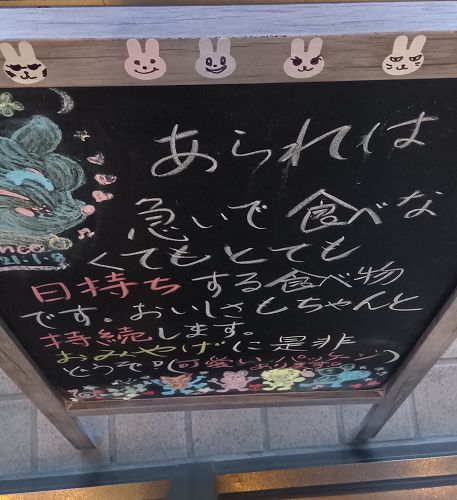 あられは
急いで食べな
くてもとても
日持ちする食べ物
です。おいしさもちゃんと
持続します。
おみやげに是非
どうぞ♡(可愛いパッケージ
あります)
21.1.9